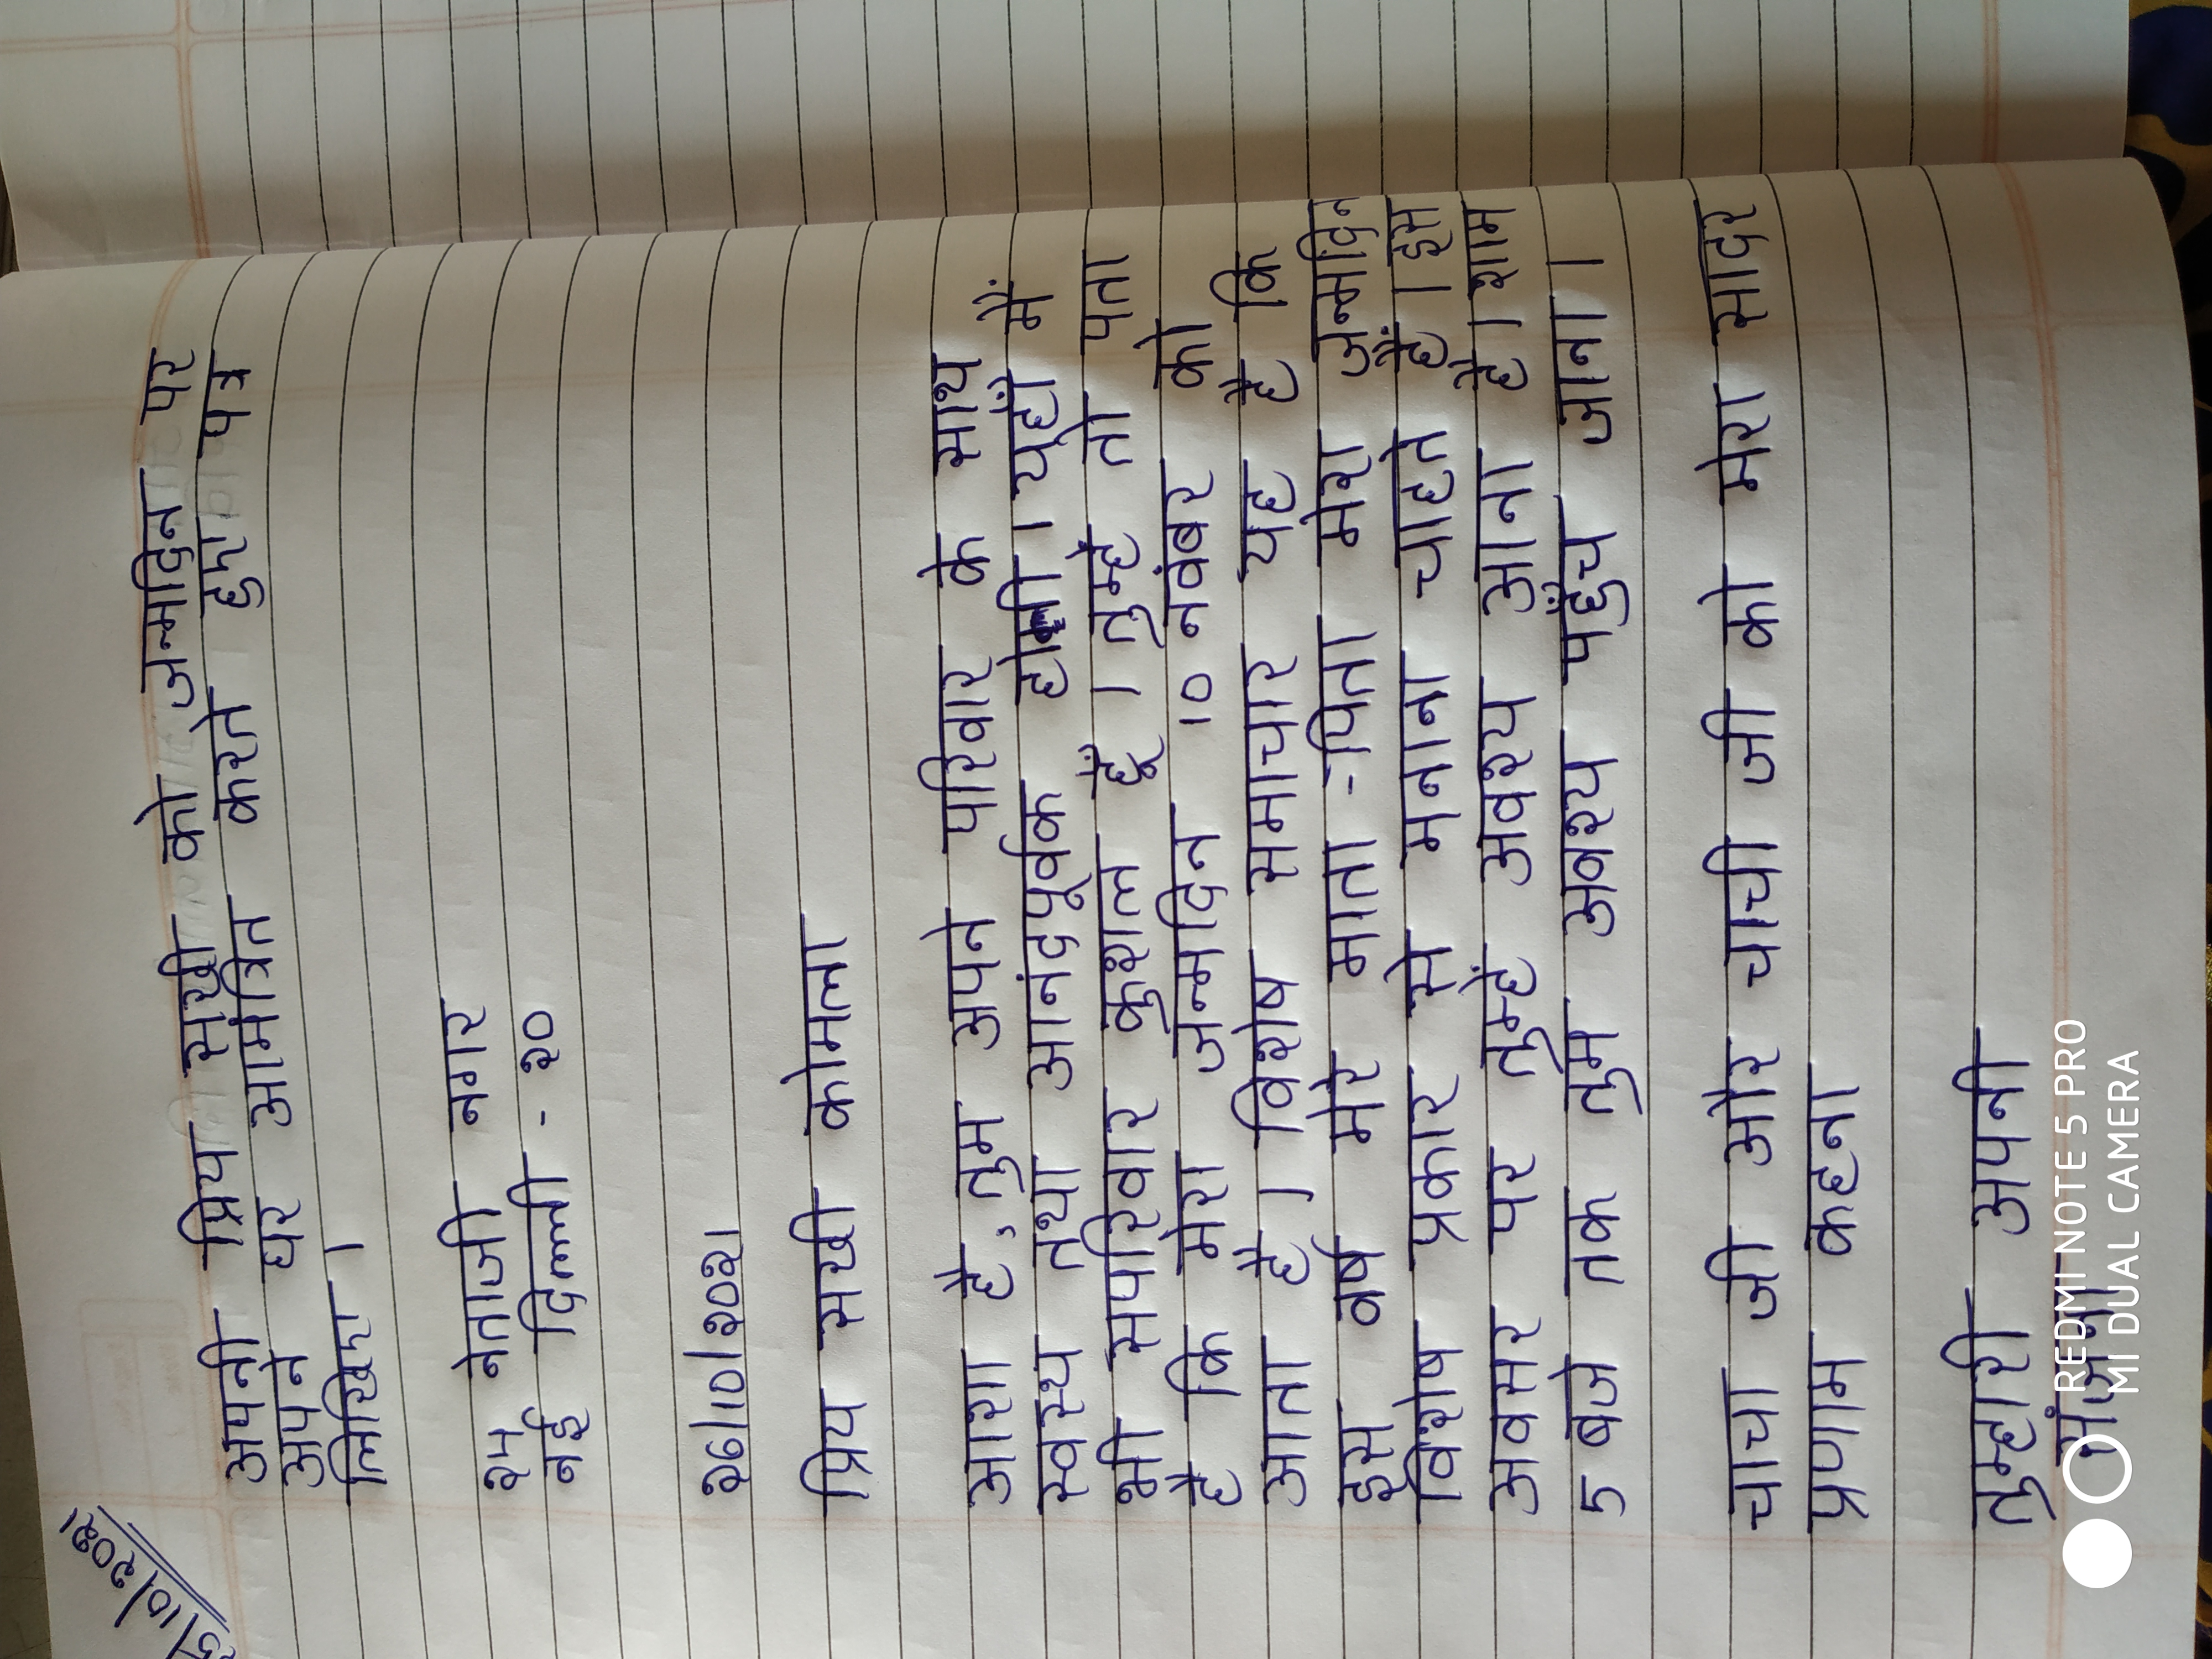 /10/२०२१
अपनी प्रिय सखी को जन्मदिन पर
अपने घर आमंत्रित करते हुए पत्र
लिखिए ।
२५ नेताजी नगर
नई दिल्ली - २०
२६/१०/२०२१
प्रिय सखी कोमल
आशा है, तुम अपने परिवार के साथ
स्वस्थ तथा आनंदपूर्वक होगी । यहाँ मैं
भी सपरिवार कुशल हूँ । तुम्हे तो पता
है कि मेरा जन्मदिन १० नवंबर को
आता है । विशेष समाचार यह है कि
इस वर्ष मेरे माता -पिता मेरा जन्मदिन
विशेष प्रकार से मनाना चाहते हैं । इस
अवसर पर तुम्हें अवश्य आना है । शाम
5 बजे तक तुम अवश्य पहुँच जाना ।
चाचा जी और चाची जी को मेरा सादर
प्रणाम कहना
तुम्हारी अपनी
REDMI NOTE 5 PRO
MI DUAL CAMERA